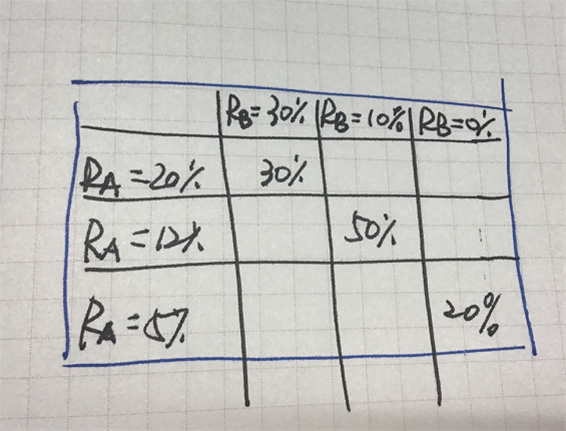 RB=30% RB=10% RB=0%
RA=20% 30%
RA=12% 50%
RA=5% 20%